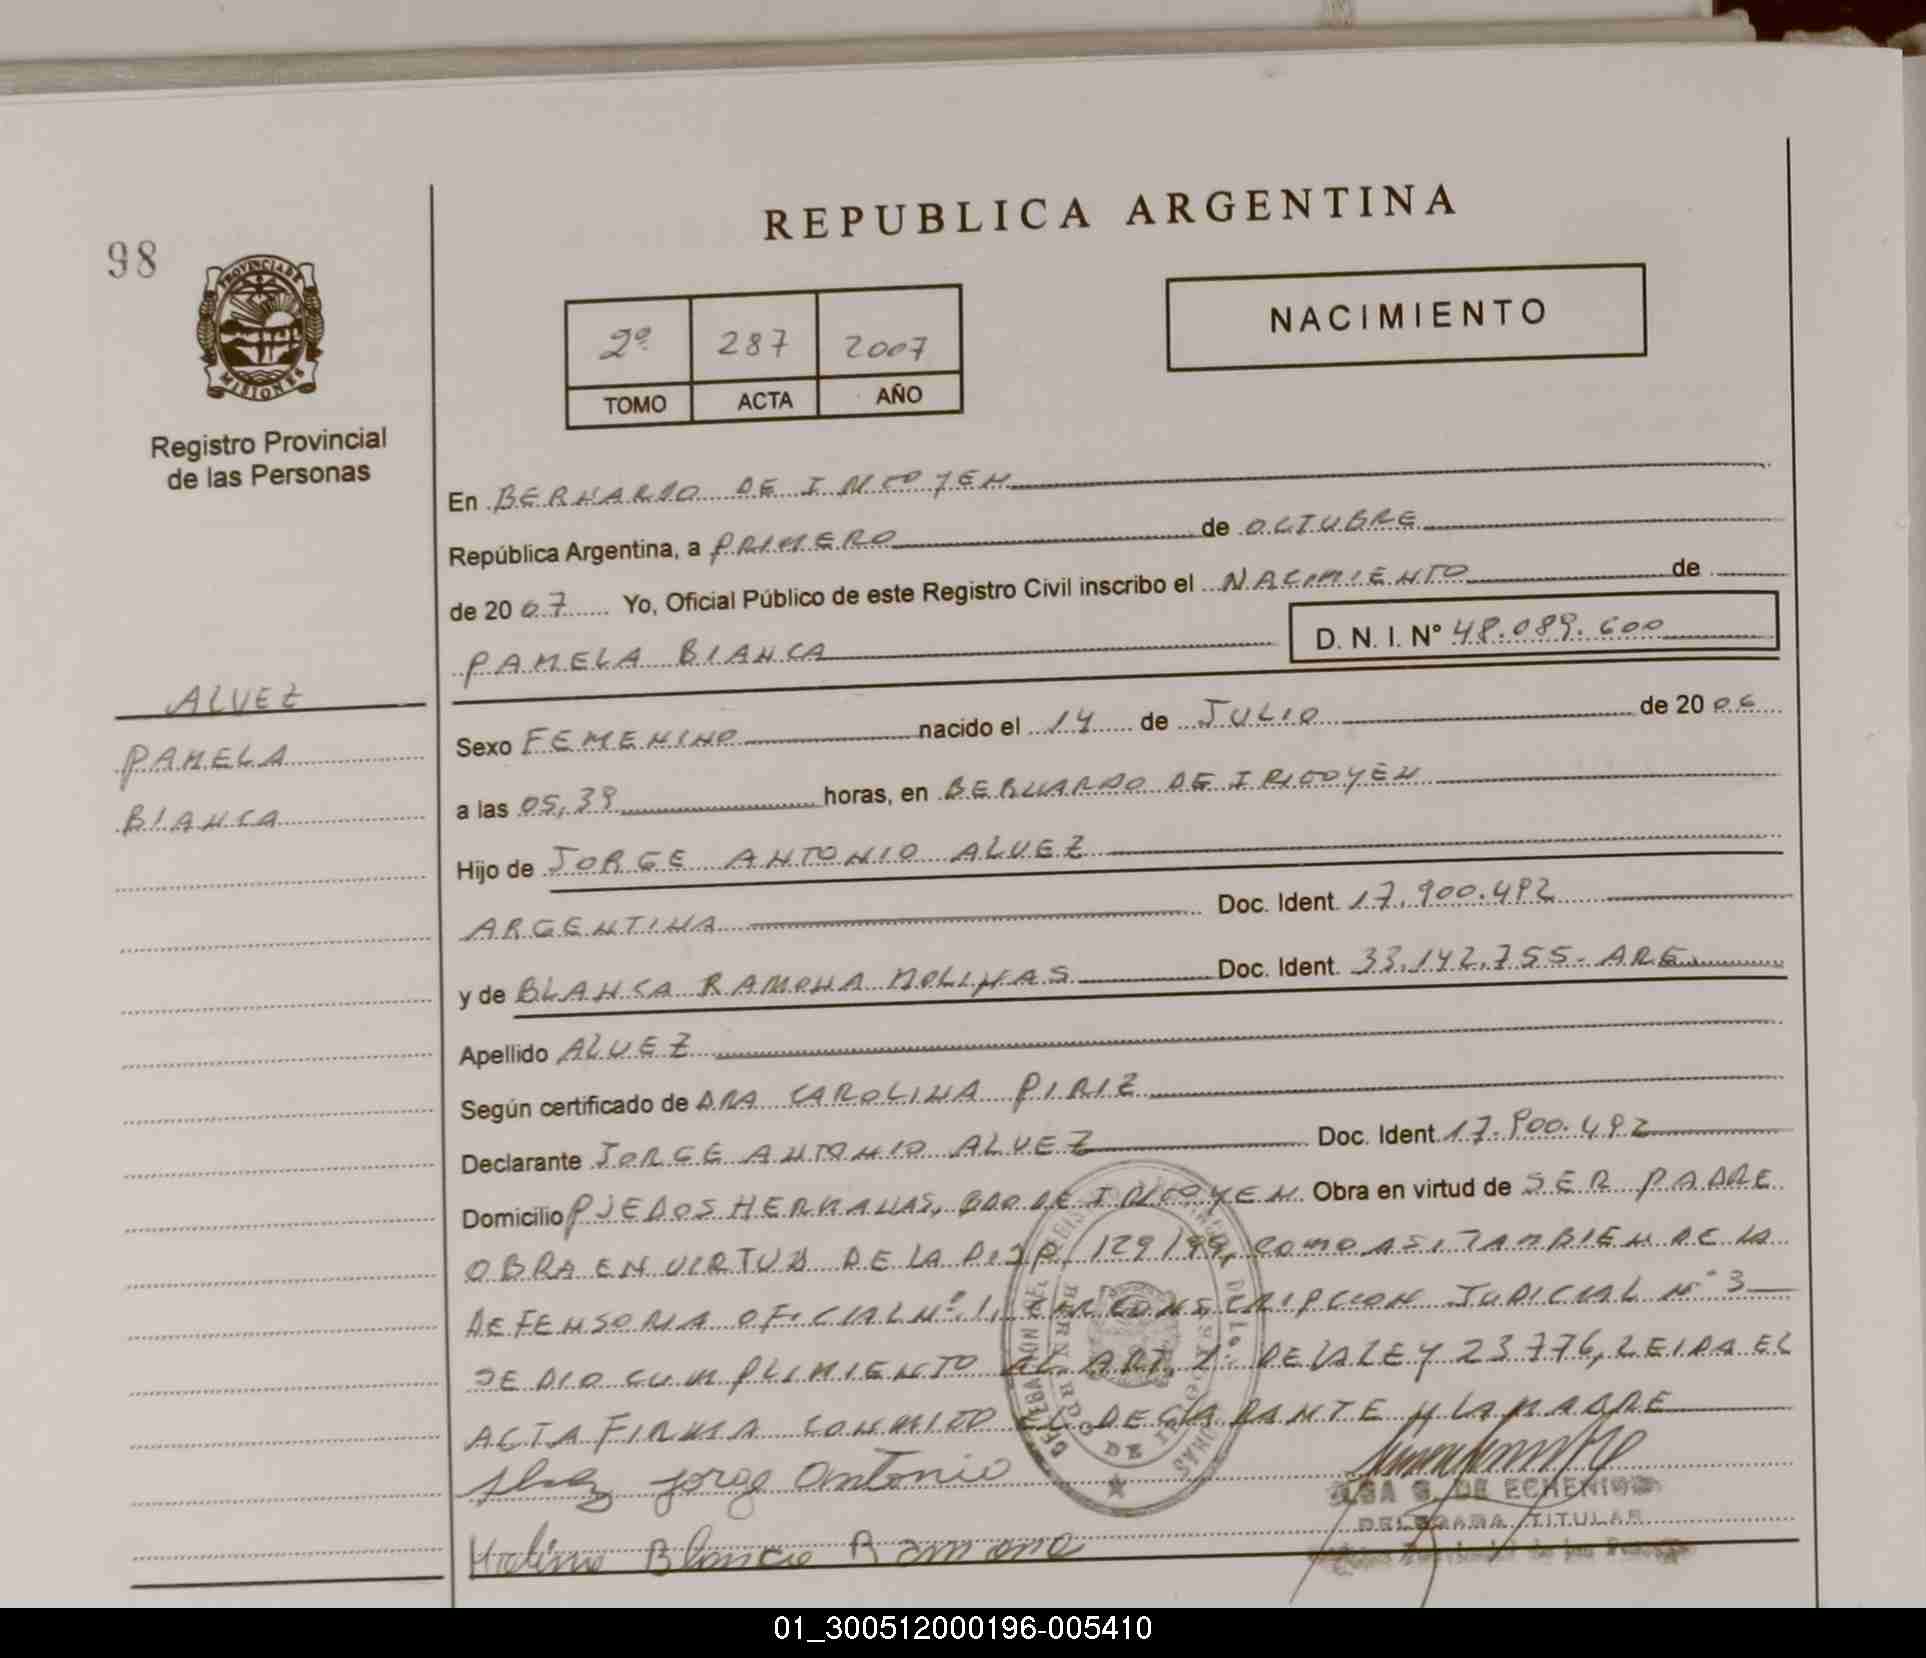 REPUBLICA ARGENTINA
98
PROVINCIA DE
MISIONES
Registro Provincial
de las Personas
2º 287 2007
TOMO ACTA AÑO
NACIMIENTO
En BERNARDO DE IRIGOYEN
República Argentina, a PRIMERO de OCTUBRE
de 2007 Yo, Oficial Público de este Registro Civil inscribo el NACIMIENTO de
PAMELA BIANCA D. N. I. Nº 48.089.600
ALVEZ
PAMELA
BIANCA
Sexo FEMENINO nacido el 14 de JULIO de 2006
a las 05,39 horas, en BERNARDO DE IRIGOYEN
Hijo de JORGE ANTONIO ALVEZ
ARGENTINA Doc. Ident. 17.900.492
y de BLANCA RAMONA MOLINAS Doc. Ident. 33.142.755- ARG
Apellido ALVEZ
Según certificado de DRA CAROLINA PIRIZ
Declarante JORGE ANTONIO ALVEZ Doc. Ident. 17.900.492
Domicilio PJE DOS HERMANAS, BDO DE IRIGOYEN Obra en virtud de SER PADRE
OBRA EN VIRTUD DE LA DISP. 129/99, COMO ASI TAMBIEN DE LA
DEFENSORIA OFICIAL Nº 1, CIRCONSCRIPCION JUDICIAL Nº 3
SE DIO CUMPLIMIENTO AL ART. 2º DE LA LEY 23776, LEIDA EL
ACTA FIRMA CONMIGO EL DECLARANTE Y LA MADRE
Alvez Jorge Antonio
Molina Blanca Ramona
DE ECHENIQUE
DELEGADA TITULAR
01_300512000196-005410